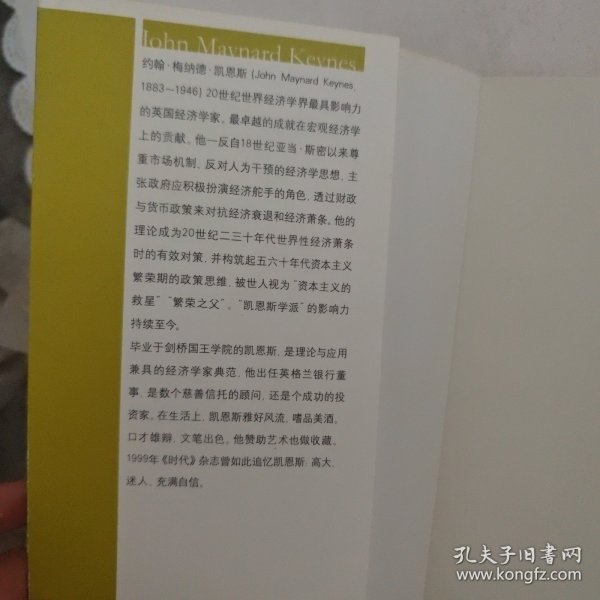 John Maynard Keynes
约翰·梅纳德·凯恩斯 (John Maynard Keynes,
1883~1946) 20世纪世界经济学界最具影响力
的英国经济学家。最卓越的成就在宏观经济学
上的贡献。他一反自18世纪亚当·斯密以来尊
重市场机制、反对人为干预的经济学思想,主
张政府应积极扮演经济舵手的角色,透过财政
与货币政策来对抗经济衰退和经济萧条。他的
理论成为20世纪二三十年代世界性经济萧条
时的有效对策,并构筑起五六十年代资本主义
繁荣期的政策思维,被世人视为“资本主义的
救星”“繁荣之父”。“凯恩斯学派”的影响力
持续至今。
毕业于剑桥国王学院的凯恩斯,是理论与应用
兼具的经济学家典范,他出任英格兰银行董
事,是数个慈善信托的顾问,还是个成功的投
资家。在生活上,凯恩斯雅好风流,嗜品美酒。
口才雄辩,文笔出色。他赞助艺术也做收藏。
1999年《时代》杂志曾如此追忆凯恩斯:高大,
迷人,充满自信。
孔夫子旧书网
www.kongfz.com